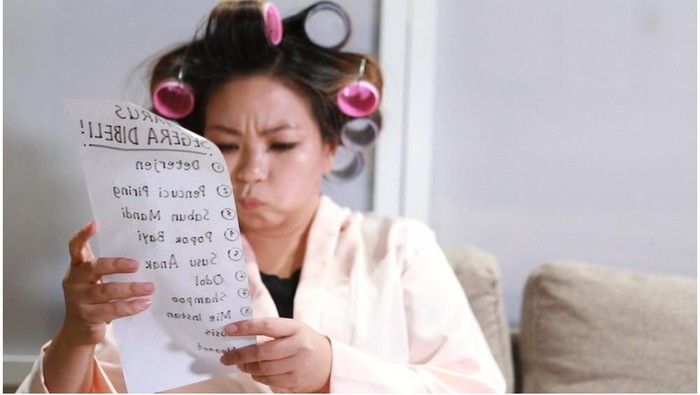 HARUS
SEGERA DIBELI!
① Deterjen
② Pencuci Piring
③ Sabun Mandi
④ Popok Bayi
⑤ Susu Anak
⑥ Odol
⑦ Shampoo
⑧ Mie Instan